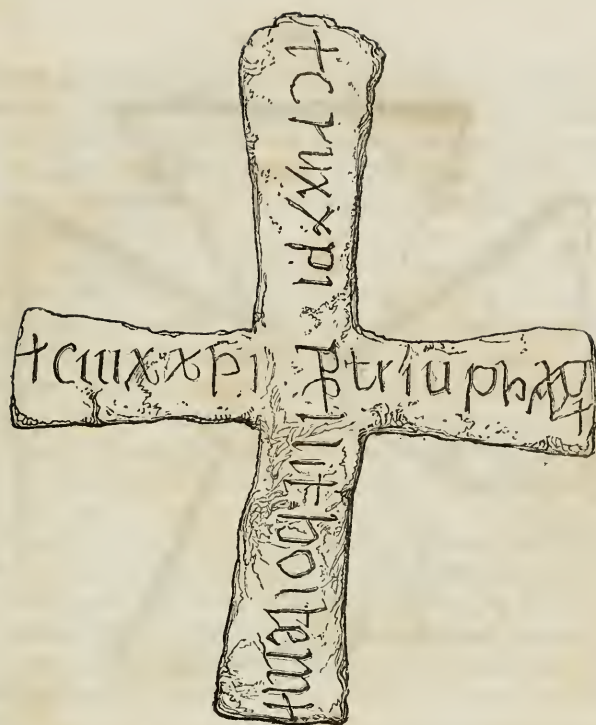 +cruxxpi pellit hoſtem+
+cruxxpi triuphat+